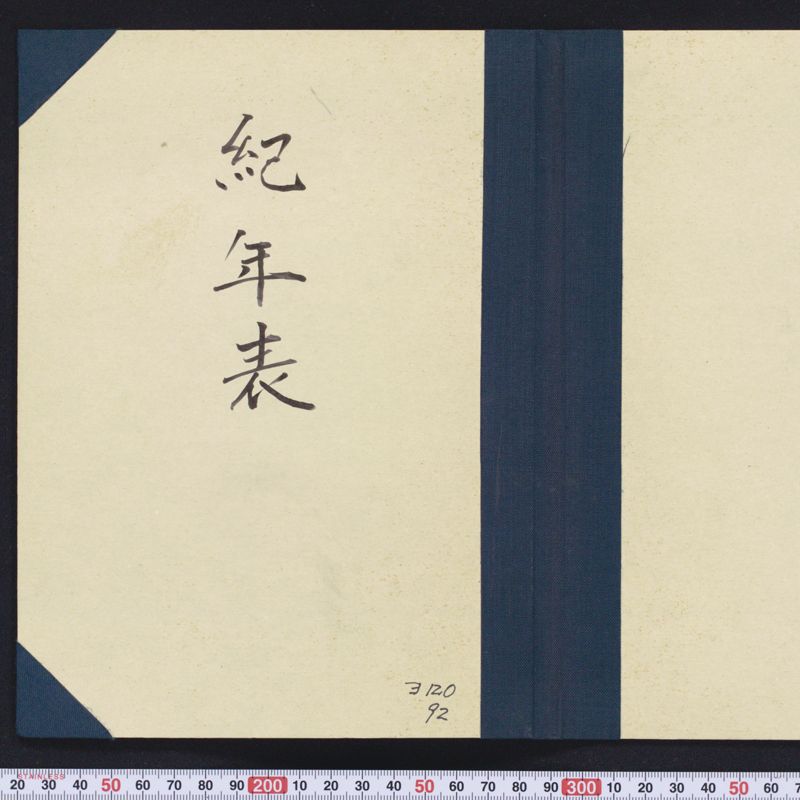 紀年表
ヨ120
92
STAINLESS
20 30 40 50 60 70 80 90 200 10 20 30 40 50 60 70 80 90 300 10 20 30 40 50 60